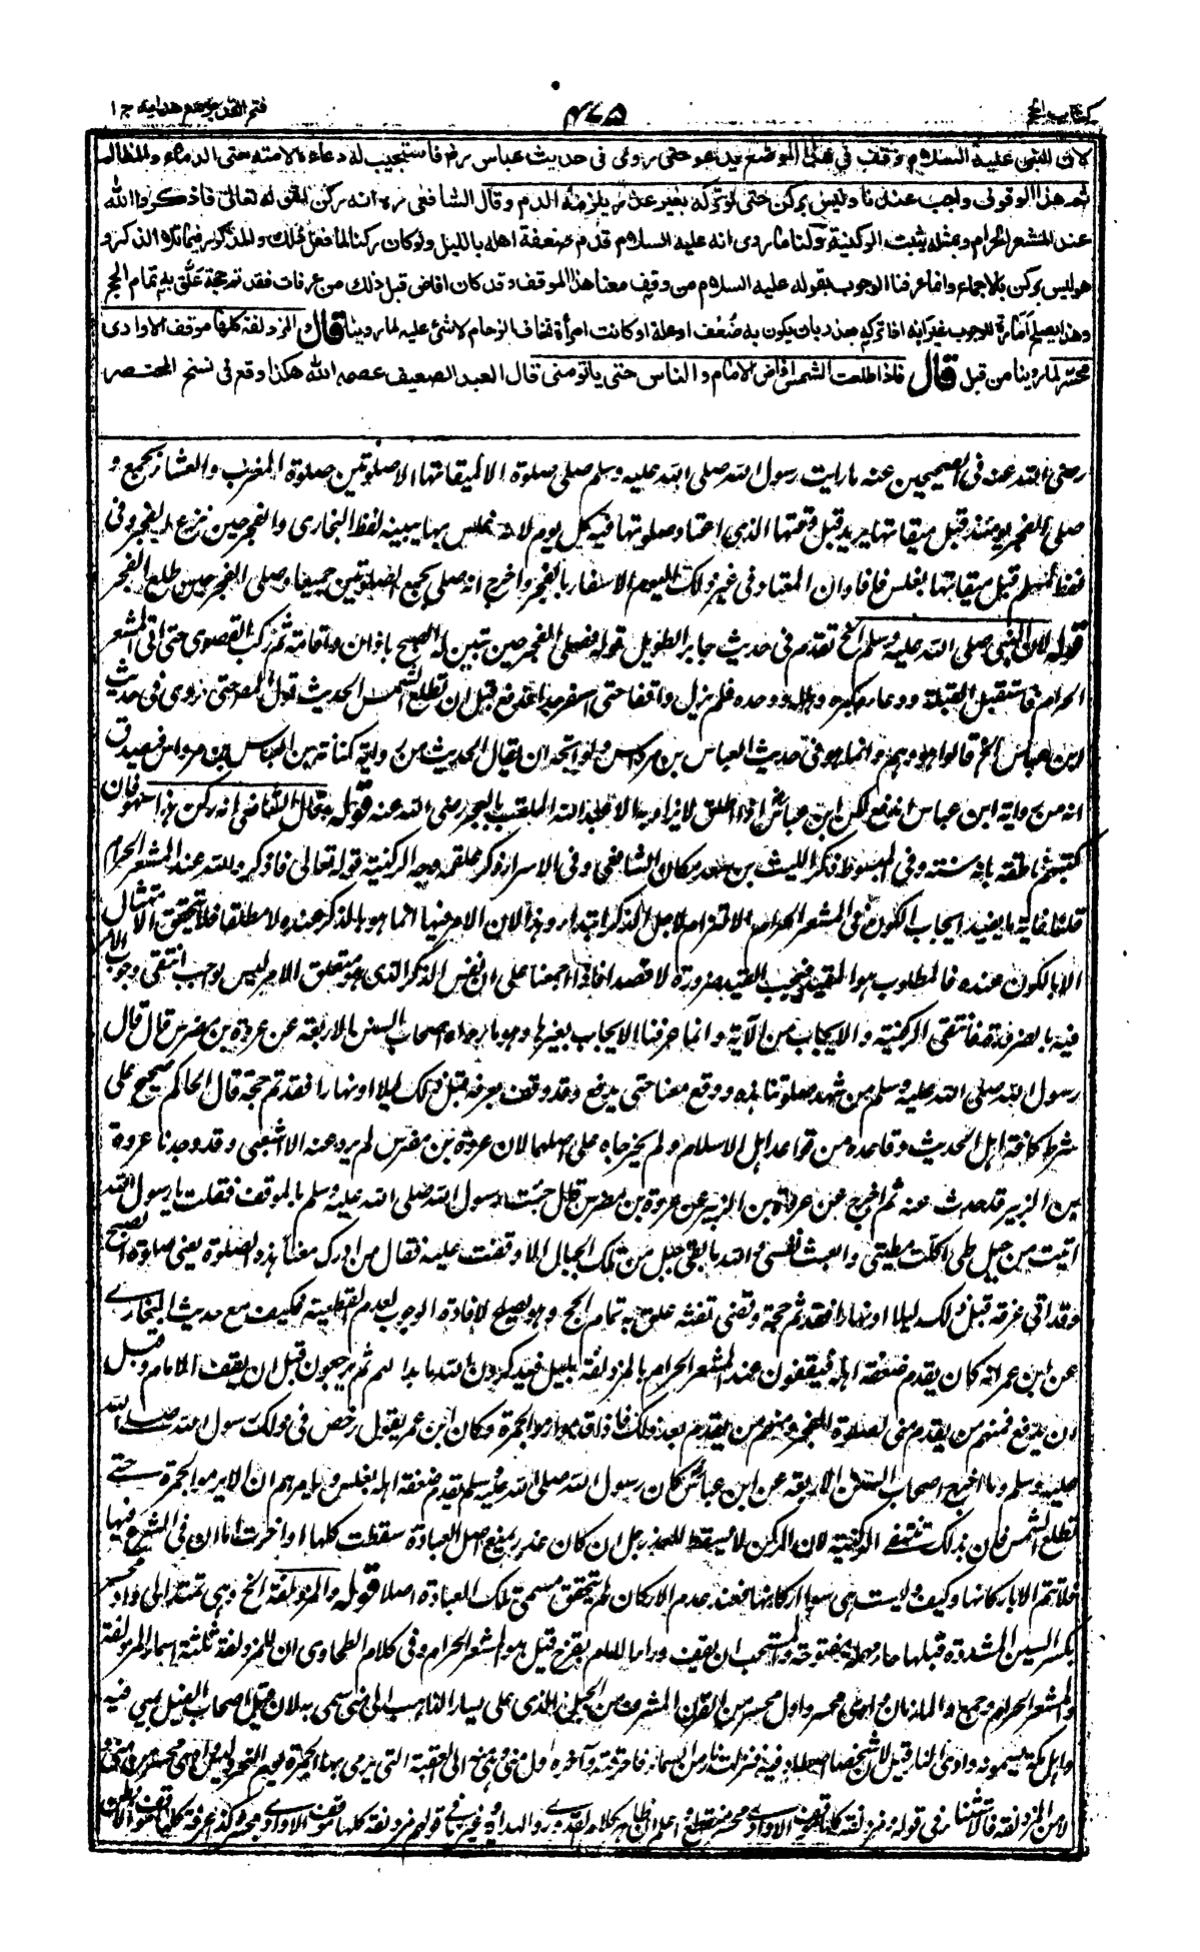 كتاب الحج
٤٧٥
فتح القدير مع هدايه ج ١
لان النبى عليه السلام وقف فى هذا الموضع يدعو حتى روى فى حديث عباس رض فاستجيب له دعاءه لامته حتى الدماء والمظالم
ثم هذا الوقوف واجب عندنا وليس بركن حتى لو تركه بغير عذر يلزمه الدم وقال الشافعى ره انه ركن لقوله تعالى فاذكروا الله
عند المشعر الحرام وبمثله يثبت الركنية ولنا ما روى انه عليه السلام قدم ضعفة اهله بالليل ولو كان ركنا لما فعل ذلك والمذكور فيما تلاه الذكر و
هو ليس بركن بالاجماع وانما عرفنا الوجوب بقوله عليه السلام من وقف معنا هذا الموقف وقد كان افاض قبل ذلك من عرفات فقد تم حجة علق به تمام الحج
وهذا يصلح امارة للوجوب غير انه اذا تركه بعذر بان يكون به ضعف او علة او كانت امرأة تخاف الزحام لا شئ عليه لما روينا قال والمزدلفة كلها موقف الا وادى
محسر لما روينا من قبل قال فاذا طلعت الشمس افاض الامام والناس حتى ياتو منى قال العبد الضعيف عصمه الله هكذا وقع فى نسخ المختصر
رضى الله عنه فى الصحيحين عنه ما رايت رسول الله صلى الله عليه وسلم صلى صلوة الا لميقاتها الا صلوتين صلوة المغرب والعشاء بجمع و
صلى الفجر يومئذ قبل ميقاتها يريد قبل وقتها الذى اعتاد صلوتها فيه كل يوم لانه غلس بها يبينه لفظ البخارى والفجر حين بزغ الفجر وفى
لفظ لمسلم قبل ميقاتها بغلس فافاد ان المعتاد فى غير ذلك اليوم الاسفار بالفجر واخرج انه صلى بجمع الصلوتين جميعا وصلى الفجر حين طلع الفجر
قوله لان النبى صلى الله عليه وسلم الخ تقدم فى حديث جابر الطويل قوله فصلى الفجر حين تبين له الصبح باذان واقامة ثم ركب القصوى حتى اتى المشعر
الحرام فاستقبل القبلة ودعاه وكبره وهلله ووحده فلم يزل واقفا حتى اسفر جدا فدفع قبل ان تطلع الشمس الحديث قوله حتى روى فى حديث
ابن عباس الخ قالوا هو وهم وانما هو فى حديث العباس بن مرداس ولو اتجه ان يقال الحديث من رواية كنانة بن العباس بن مرداس فيصدق
انه من رواية ابن عباس اندفع لكن ابن عباس اذا اطلق لا يراد به الا عبد الله الملقب بالبحر رضى الله عنه قوله وقال الشافعى انه ركن هذا سهو فان
كتبهم ناطقة بانه سنة وفى المبسوط ذكر الليث بن سعد مكان الشافعى وفى الاسرار ذكر علقمه وجه الركنية قوله تعالى فاذكروا الله عند المشعر الحرام
قلنا غاية ما يفيد ايجاب الكون فى المشعر الحرام الالتزام لاجل الذكر ابتداء وهذا لان الامر فيها انما هو بالذكر عنده لا مطلقا فلا يتحقق الامتثال
الا بالكون عنده فالمطلوب هو المقيد فيجب القيد ضرورة لا قصدا فاذا اجمعنا على ان نفس الذكر الذى هو متعلق الامر ليس بواجب انتفى وجوب الامر
فيه بالضرورة فانتفى الركنية والايجاب من الآية وانما عرفنا الايجاب بغيرها وهو ما رواه اصحاب السنن الاربعة عن عروة بن مضرس قال قال
رسول الله صلى الله عليه وسلم من شهد صلوتنا هذه ووقف معنا حتى يدفع وقد وقف بعرفة قبل ذلك ليلا او نهارا فقد تم حجة قال الحاكم صحيح على
شرط كافة اهل الحديث وقاعدة من قواعد اهل الاسلام ولم يخرجاه على اصلهما لان عروة بن مضرس لم يرو عنه الا الشعبى وقد وجدنا عروة
بن الزبير قد حدث عنه ثم اخرج عن عروة بن الزبير عن عروة بن مضرس قال جئت رسول الله صلى الله عليه وسلم بالموقف فقلت يا رسول الله
اتيت من جبل طى اكلت مطيتى واتعبت نفسى والله ما بقى جبل من تلك الجبال الا وقفت عليه فقال من ادرك معنا هذه الصلوة يعنى صلوة الصبح
وقد اتى عرفة قبل ذلك ليلا او نهارا فقد تم حجة وقضى تفثه علق به تمام الحج وهو يصلح لافادة الوجوب لعدم القطعية فكيف مع حديث البخارى
عن ابن عمر انه كان يقدم ضعفة اهله فيقفون عند المشعر الحرام بالمزدلفة بليل فيذكرون الله ما بدا لهم ثم يرجعون قبل ان يقف الامام وقبل
ان يدفع فمنهم من يقدم منى لصلوة الفجر ومنهم من يقدم بعد ذلك فاذا قدموا رموا الجمرة وكان ابن عمر يقول رخص فى اولئك رسول الله صلى الله
عليه وسلم وما اخرج اصحاب السنن الاربعة عن ابن عباس كان رسول الله صلى الله عليه وسلم يقدم ضعفة اهله بغلس ويامرهم ان لا يرموا الجمرة حتى
تطلع الشمس فان بذلك تنتفى الركنية لان الركن لا يسقط للعذر بل ان كان عذر يمنع اصل العبادة سقطت كلها او اخرت اما ان فى الشرع فيها
فلا تتم الا باركانها وكيف وليست هى سوى اركانها فعند عدم الاركان لم يتحقق مسمى تلك العبادة اصلا قوله والمزدلفة الخ وهى تمتد الى وادى محسر
بكسر السين المشددة قبلها حاء مهملة مفتوحة والمستحب ان يقف وراء الامام بقزح قيل هو المشعر الحرام وفى كلام الطحاوى ان للمزدلفة ثلثة اسماء المزدلفة
والمشعر الحرام وجمع والمازمان وادى محسر واول محسر من القرن المشرف من الجبل الذى على يسار الذاهب الى منى سمى به لان فيل اصحاب الفيل اعيى فيه
واهل مكة يسمونه وادى النار قيل لان شخصا اصطاد فيه فنزلت نار من السماء فاحرقته وآخره اول منى وهى منه الى العقبة التى يرمى بها الجمرة يوم النحر وليس وادى محسر من منى